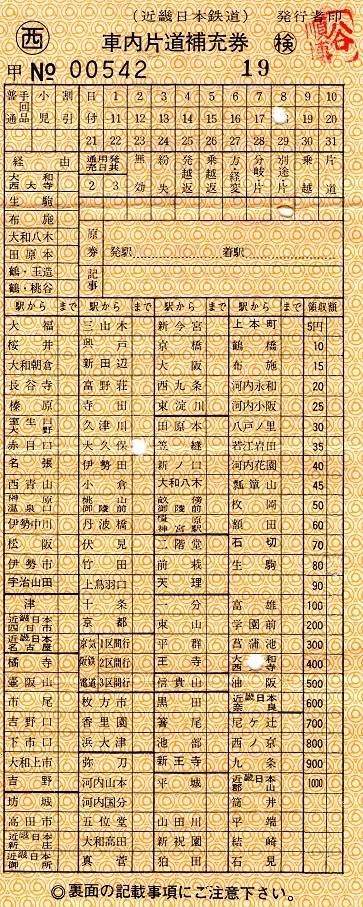 (近畿日本鉄道) 発行者印
西 車内片道補充券 検
甲 № 00542 19
普通 手回品 小児 割引 日付 1 2 3 4 5 6 7 8 9 10
11 12 13 14 15 16 17 18 19 20
21 22 23 24 25 26 27 28 29 30 31
経由 通用発売日共 無効 紛失 発駅越返 乗越返 方経変 分岐片 別途片 乗越 片道
大和西大寺 2 3
生駒
布施
大和八木 原券
田原本 発駅 着駅
鶴・玉造 記事
鶴・桃谷
駅から まで 駅から まで 駅から まで 駅から まで 領収額
大福 三山木 新今宮 上本町 5円
桜井 興戸 京橋 鶴橋 10
大和朝倉 新田辺 大阪 布施 15
長谷寺 富野荘 西九条 河内永和 20
榛原 寺田 東淀川 河内小阪 25
室生口大野 久津川 田原本 八戸ノ里 30
赤目口 大久保 笠縫 若江岩田 35
名張 伊勢田 新ノ口 河内花園 40
西青山 小倉 大和八木 瓢簞山 45
榊原温泉口 桃山御陵前 畝傍御陵前 枚岡 50
伊勢中川 丹波橋 橿原神宮駅 額田 60
松阪 伏見 二階堂 石切 70
伊勢市 竹田 前栽 生駒 80
宇治山田 上鳥羽口 天理 90
津 十条 一分 富雄 100
近畿日本四日市 京都 東山 学園前 200
近畿日本名古屋 京気1区間行 平群 菖蒲池 300
橘寺 阪鉄2区間行 王寺 大和西大寺 400
壷阪山 電道3区間行 信貴山 油阪 500
市尾 枚方市 黒田 近畿日本奈良 600
吉野口 香里園 箸尾 尼ヶ辻 700
下市口 浜大津 池部 西ノ京 800
大和上市 弥刀 新王寺 九条 900
吉野 河内山本 平城 近畿日本郡山 1000
坊城 河内国分 筒井
高田市 五位堂 山田川 平端
近畿日本新庄 大和高田 新祝園 結崎
近畿日本御所 真菅 狛田 石見
◎裏面の記載事項にご注意下さい。